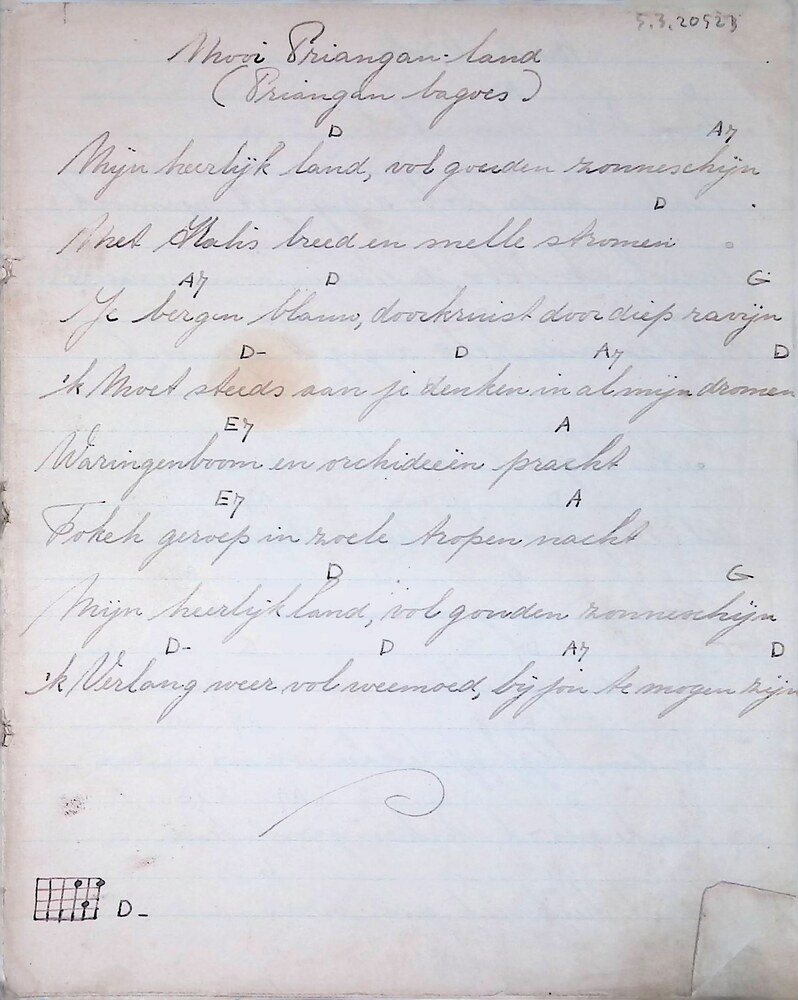 5.3.20523
Mooi Priangan-land
(Priangan bagoes)
D A7
Mijn heerlijk land, vol gouden zonneschijn
D
Met Kalis breed en snelle stromen
A7 D G
Je bergen blauw, doorkruist door diep ravijn
D- D A7 D
'k Moet steeds aan je denken in al mijn dromen
E7 A
Waringenboom en orchideeën pracht
E7 A
Tokeh geroep in zoele tropen nacht
D G
Mijn heerlijk land, vol gouden zonneschijn
D- D A7 D
'k Verlang weer vol weemoed, bij jou te mogen zijn
D-